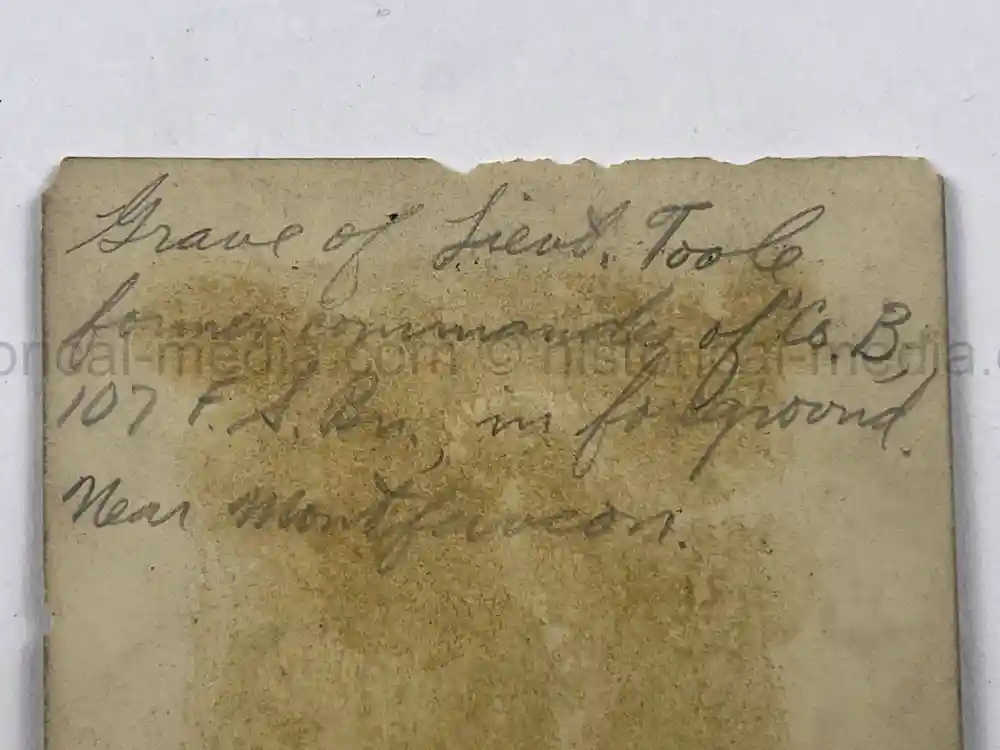 Grave of Lieut. Toole
former commander of Co. B,
107 F. S. Bn, in foreground.
Near Montfaucon.
historical-media.com © historical-media.com